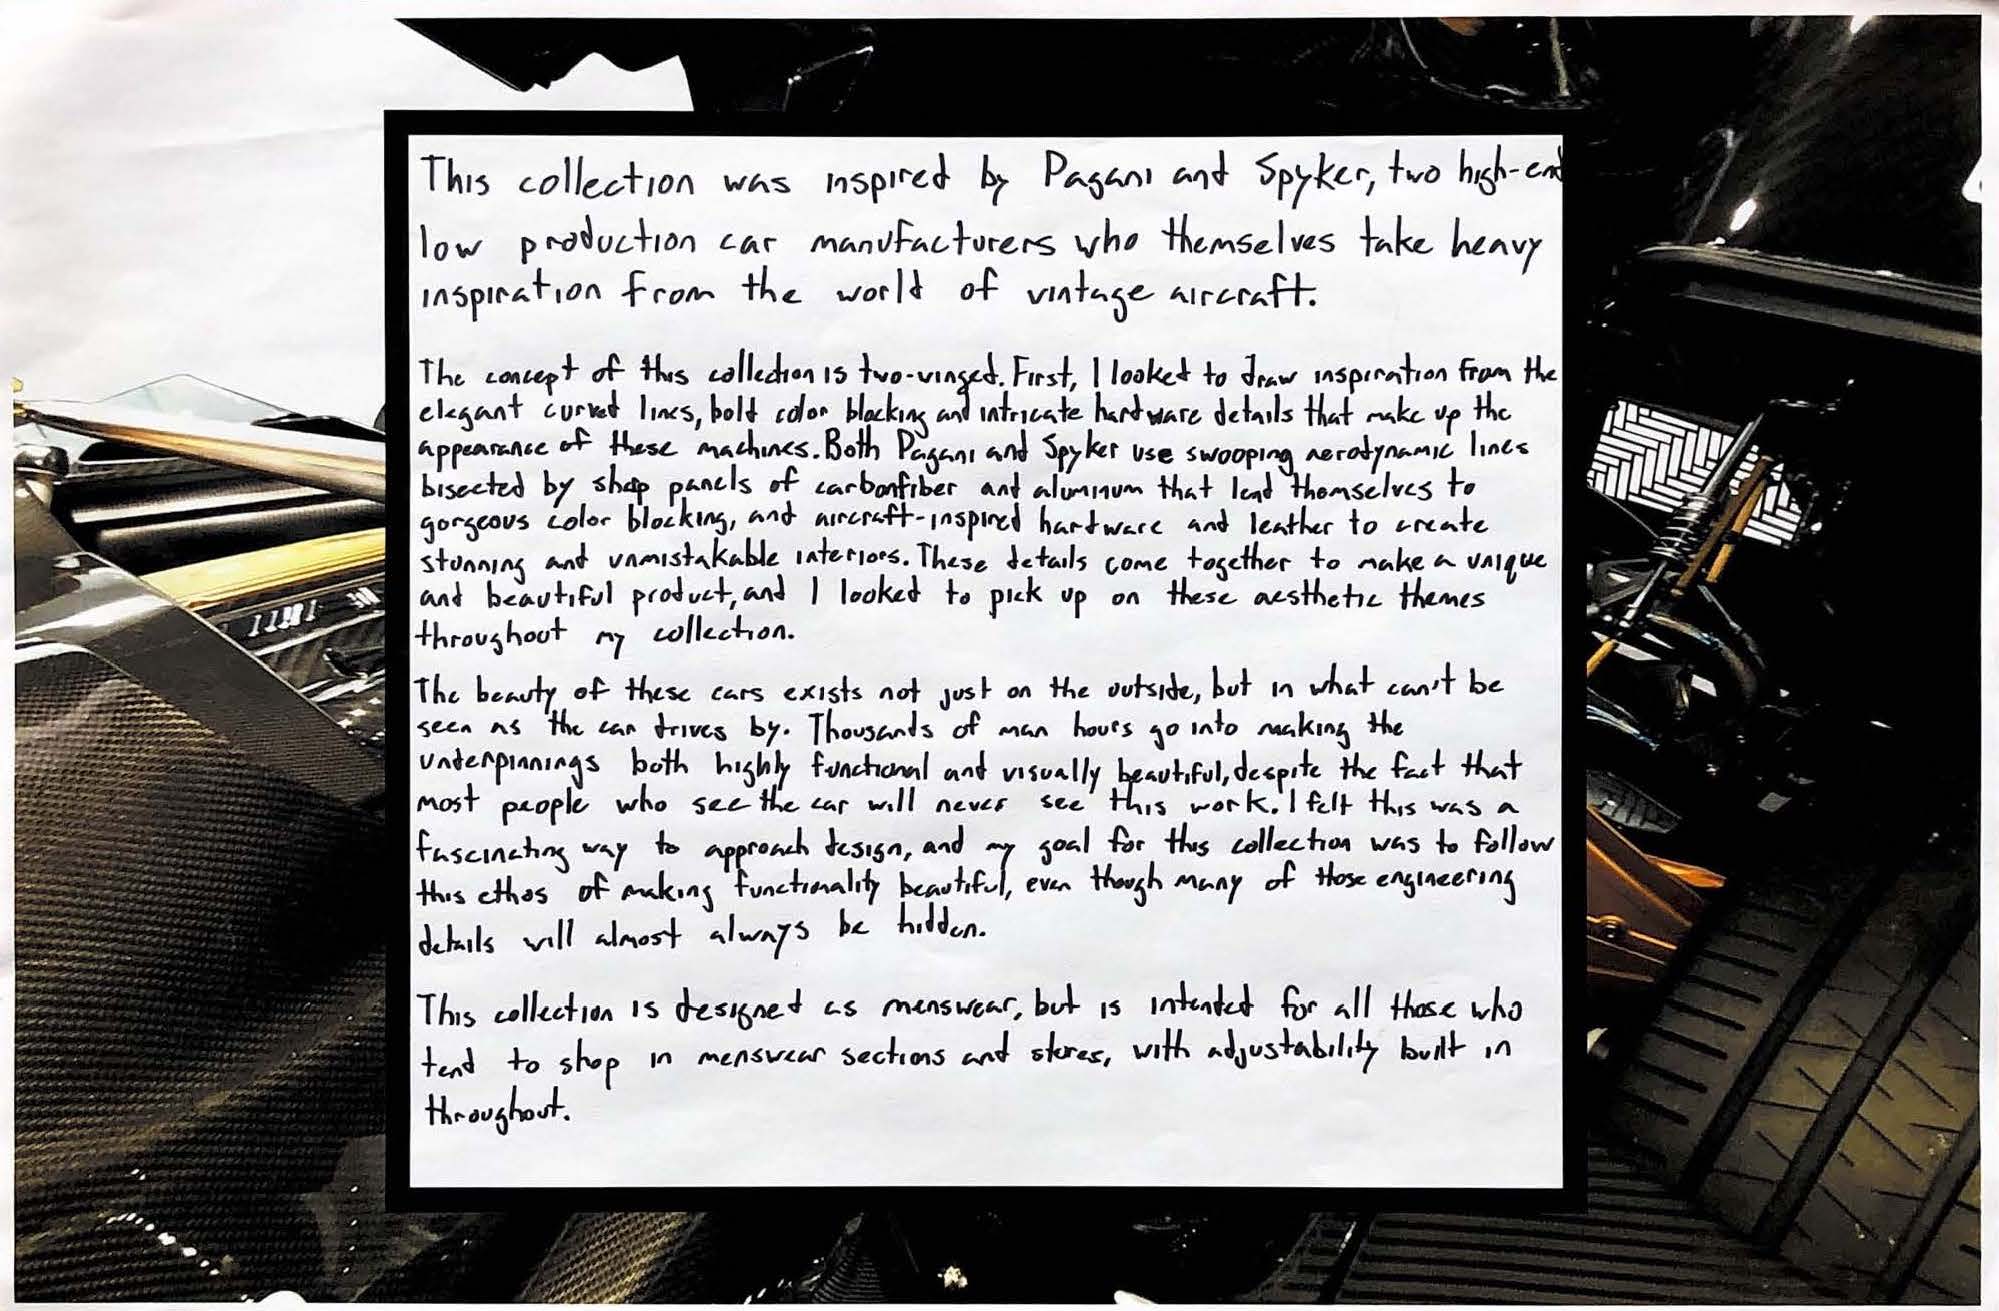 This collection was inspired by Pagani and Spyker, two high-end
low production car manufacturers who themselves take heavy
inspiration from the world of vintage aircraft.
The concept of this collection is two-vinged. First, I looked to draw inspiration from the
elegant curved lines, bold color blocking and intricate hardware details that make up the
appearance of these machines. Both Pagani and Spyker use swooping aerodynamic lines
bisected by shap panels of carbonfiber and aluminum that lend themselves to
gorgeous color blocking, and aircraft-inspired hardware and leather to create
stunning and unmistakable interiors. These details come together to make a unique
and beautiful product, and I looked to pick up on these aesthetic themes
throughout my collection.
The beauty of these cars exists not just on the outside, but in what can't be
seen as the car drives by. Thousands of man hours go into making the
underpinnings both highly functional and visually beautiful, despite the fact that
most people who see the car will never see this work. I felt this was a
fascinating way to approach design, and my goal for this collection was to follow
this ethos of making functionality beautiful, even though many of those engineering
details will almost always be hidden.
This collection is designed as menswear, but is intended for all those who
tend to shop in menswear sections and stores, with adjustability built in
throughout.